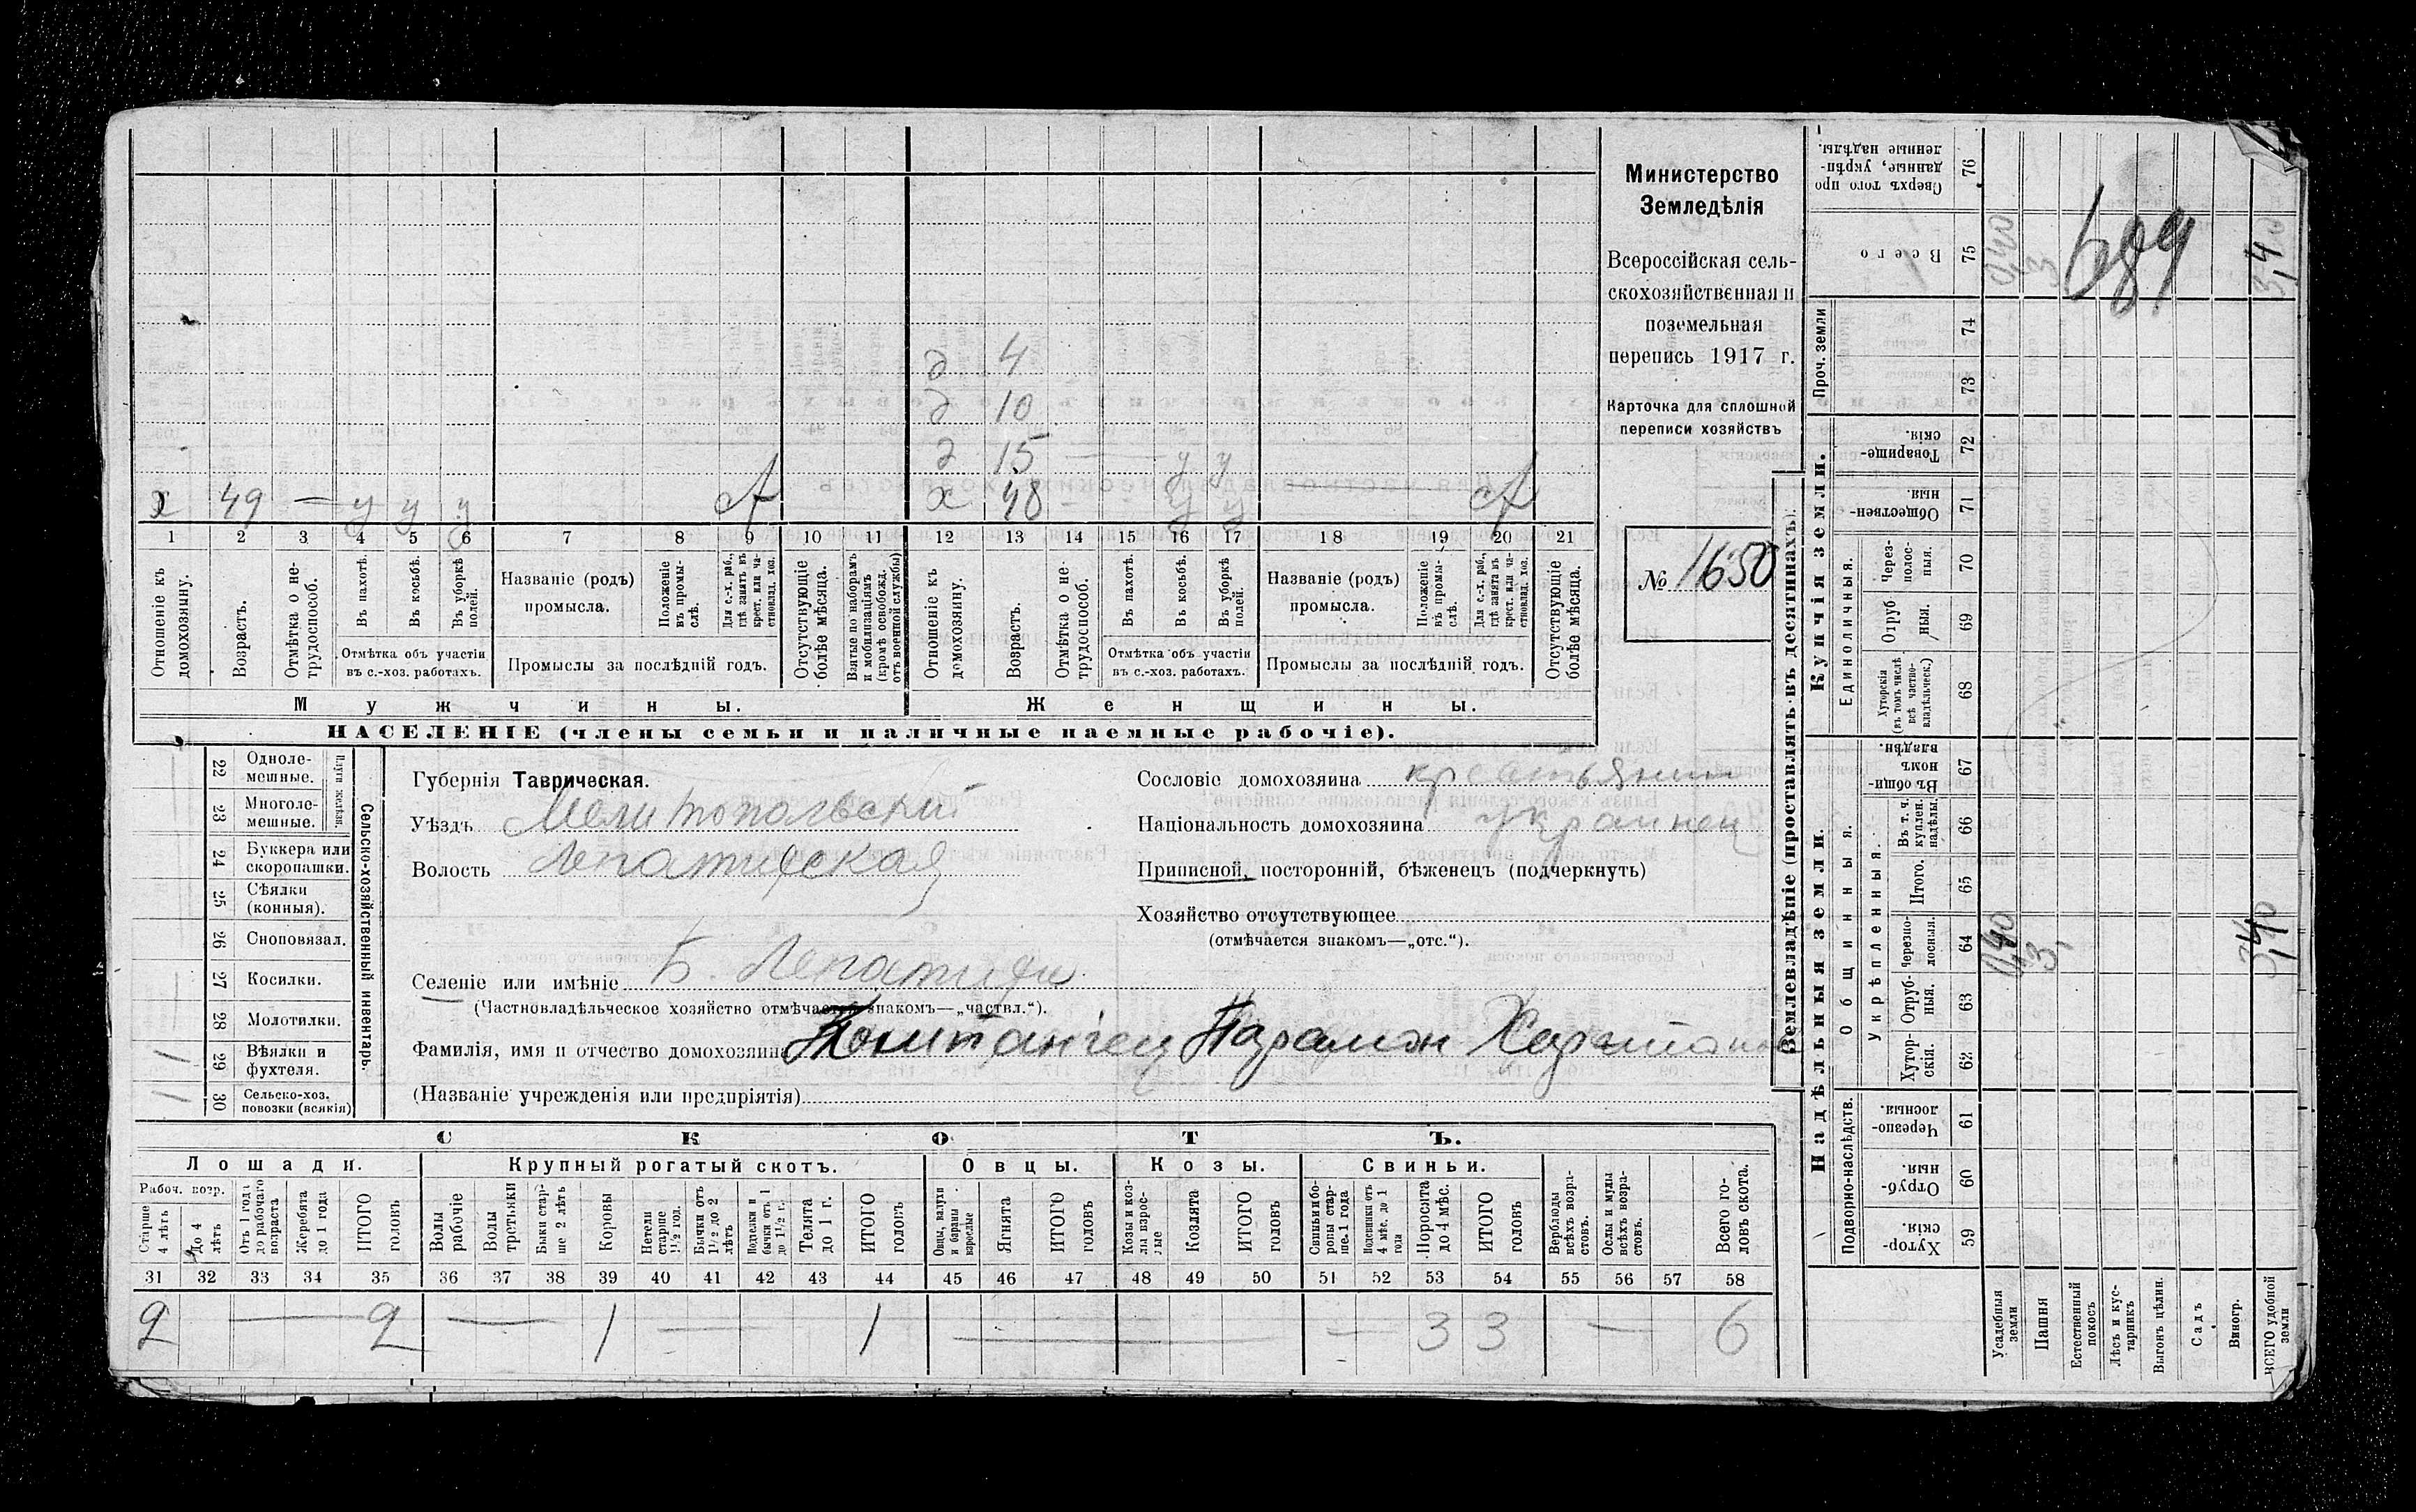 Министерство
Земледѣлія
Всероссійская сель-
скохозяйственная и
поземельная
перепись 1917 г.
Карточка для сплошной
переписи хозяйствъ
№ 1650
д 4
д 10
д 15 — у у
х 49 — у у у
х 48 - - у у
1 2 3 4 5 6 7 8 9 10 11 12 13 14 15 16 17 18 19 20 21
Отношеніе къ домохозяину.
Возрастъ.
Отмѣтка о не-трудоспособ.
Въ пахотѣ.
Въ косьбѣ.
Въ уборкѣ полей.
Отмѣтка объ участіи
въ с.-хоз. работахъ.
Названіе (родъ)
промысла.
Положеніе въ промы-слѣ.
Для с.-х. раб., гдѣ занятъ въ крест. или ча-стновлад. хоз.
Промыслы за послѣдній годъ.
Отсутствующіе болѣе мѣсяца.
Взятые по наборамъ и мобилизаціямъ (кромѣ освобожд. отъ военной службы)
Отношеніе къ домохозяину.
Возрастъ.
Отмѣтка о не-трудоспособ.
Въ пахотѣ.
Въ косьбѣ.
Въ уборкѣ полей.
Отмѣтка объ участіи
въ с.-хоз. работахъ.
Названіе (родъ)
промысла.
Положеніе въ промы-слѣ.
Для с.-х. раб., гдѣ занята въ крест. или ча-стновлад. хоз.
Промыслы за послѣдній годъ.
Отсутствующіе болѣе мѣсяца.
Мужчины.
Женщины.
НАСЕЛЕНІЕ (члены семьи и наличные наемные рабочіе).
22 Одноле-
мешные.
23 Многоле-
мешные.
Плуги желѣзн.
24 Буккера или
скоропашки.
25 Сѣялки
(конныя).
26 Сноповязал.
27 Косилки.
28 Молотилки.
1 29 Вѣялки и
фухтеля.
1 30 Сельско-хоз.
повозки (всякія)
Сельско-хозяйственный инвентарь.
Губернія Таврическая.
Уѣздъ Мелитопольский
Волость Лепатихская
Селеніе или имѣніе Б. Лепатиха
(Частновладѣльческое хозяйство отмѣчается знакомъ—„частвл.“).
Фамилія, имя и отчество домохозяина Парамон
(Названіе учрежденія или предпріятія)
Сословіе домохозяина крестьянин
Національность домохозяина украинец
Приписной, посторонній, бѣженецъ (подчеркнуть)
Хозяйство отсутствующее
(отмѣчается знакомъ—„отс.“).
СКОТЪ.
Лошади. Крупный рогатый скотъ. Овцы. Козы. Свиньи.
Рабоч. возр.
Старше 4 лѣтъ
До 4 лѣтъ
Отъ 1 года до рабочаго возраста
Жеребята до 1 года
ИТОГО головъ
Волы рабочіе
Волы третьяки
Быки стар-ше 2 лѣтъ
Коровы
Нетели старше 1½ год.
Бычки отъ 1½ до 2 лѣтъ
Подтелки и бычки отъ 1 до 1½ г.
Телята до 1 г.
ИТОГО головъ
Овцы, валухи и бараны взрослые
Ягнята
ИТОГО головъ
Козы и коз-лы взрос-лые
Козлята
ИТОГО головъ
Свиньи и бо-ровы стар-ше 1 года
Подсвинки отъ 4 мѣс. до 1 года
Поросята до 4 мѣс.
ИТОГО головъ
Верблюды всѣхъ возра-стовъ.
Ослы и мулы всѣхъ возра-стовъ.
Всего го-ловъ скота.
31 32 33 34 35 36 37 38 39 40 41 42 43 44 45 46 47 48 49 50 51 52 53 54 55 56 57 58
2 — 2 — 1 — 1 — — 3 3 — 6
Землевладѣніе (проставлять въ десятинахъ).
Надѣльныя земли.
Купчія земли.
Проч. земли
Подворно-наслѣдств.
Общинныя.
Укрѣпленныя.
Единоличныя.
Сверхъ того про-данные, укрѣп-ленные надѣлы. 76
Всего 75 0,40 3 3,40
689
74
73
Товарище-скія. 72
Обществен-ныя. 71
Через-полос-ныя. 70
Отруб-ныя. 69
Хуторскія (въ томъ числѣ всѣ частно-владѣльческ.) 68
Въ общи-номъ владѣн. 67
Въ т. ч. куплен. надѣлы. 66
Итого. 65
Черезпо-лосныя. 64 0,40 3, 3,40
Отруб-ныя. 63
Хутор-скія. 62
Черезпо-лосныя. 61
Отруб-ныя. 60
Хутор-скія. 59
Усадебныя земли
Пашня
Естественный покосъ
Лѣсъ и кус-тарникъ
Выгонъ цѣлин.
Садъ
Виногр.
ВСЕГО удобной земли